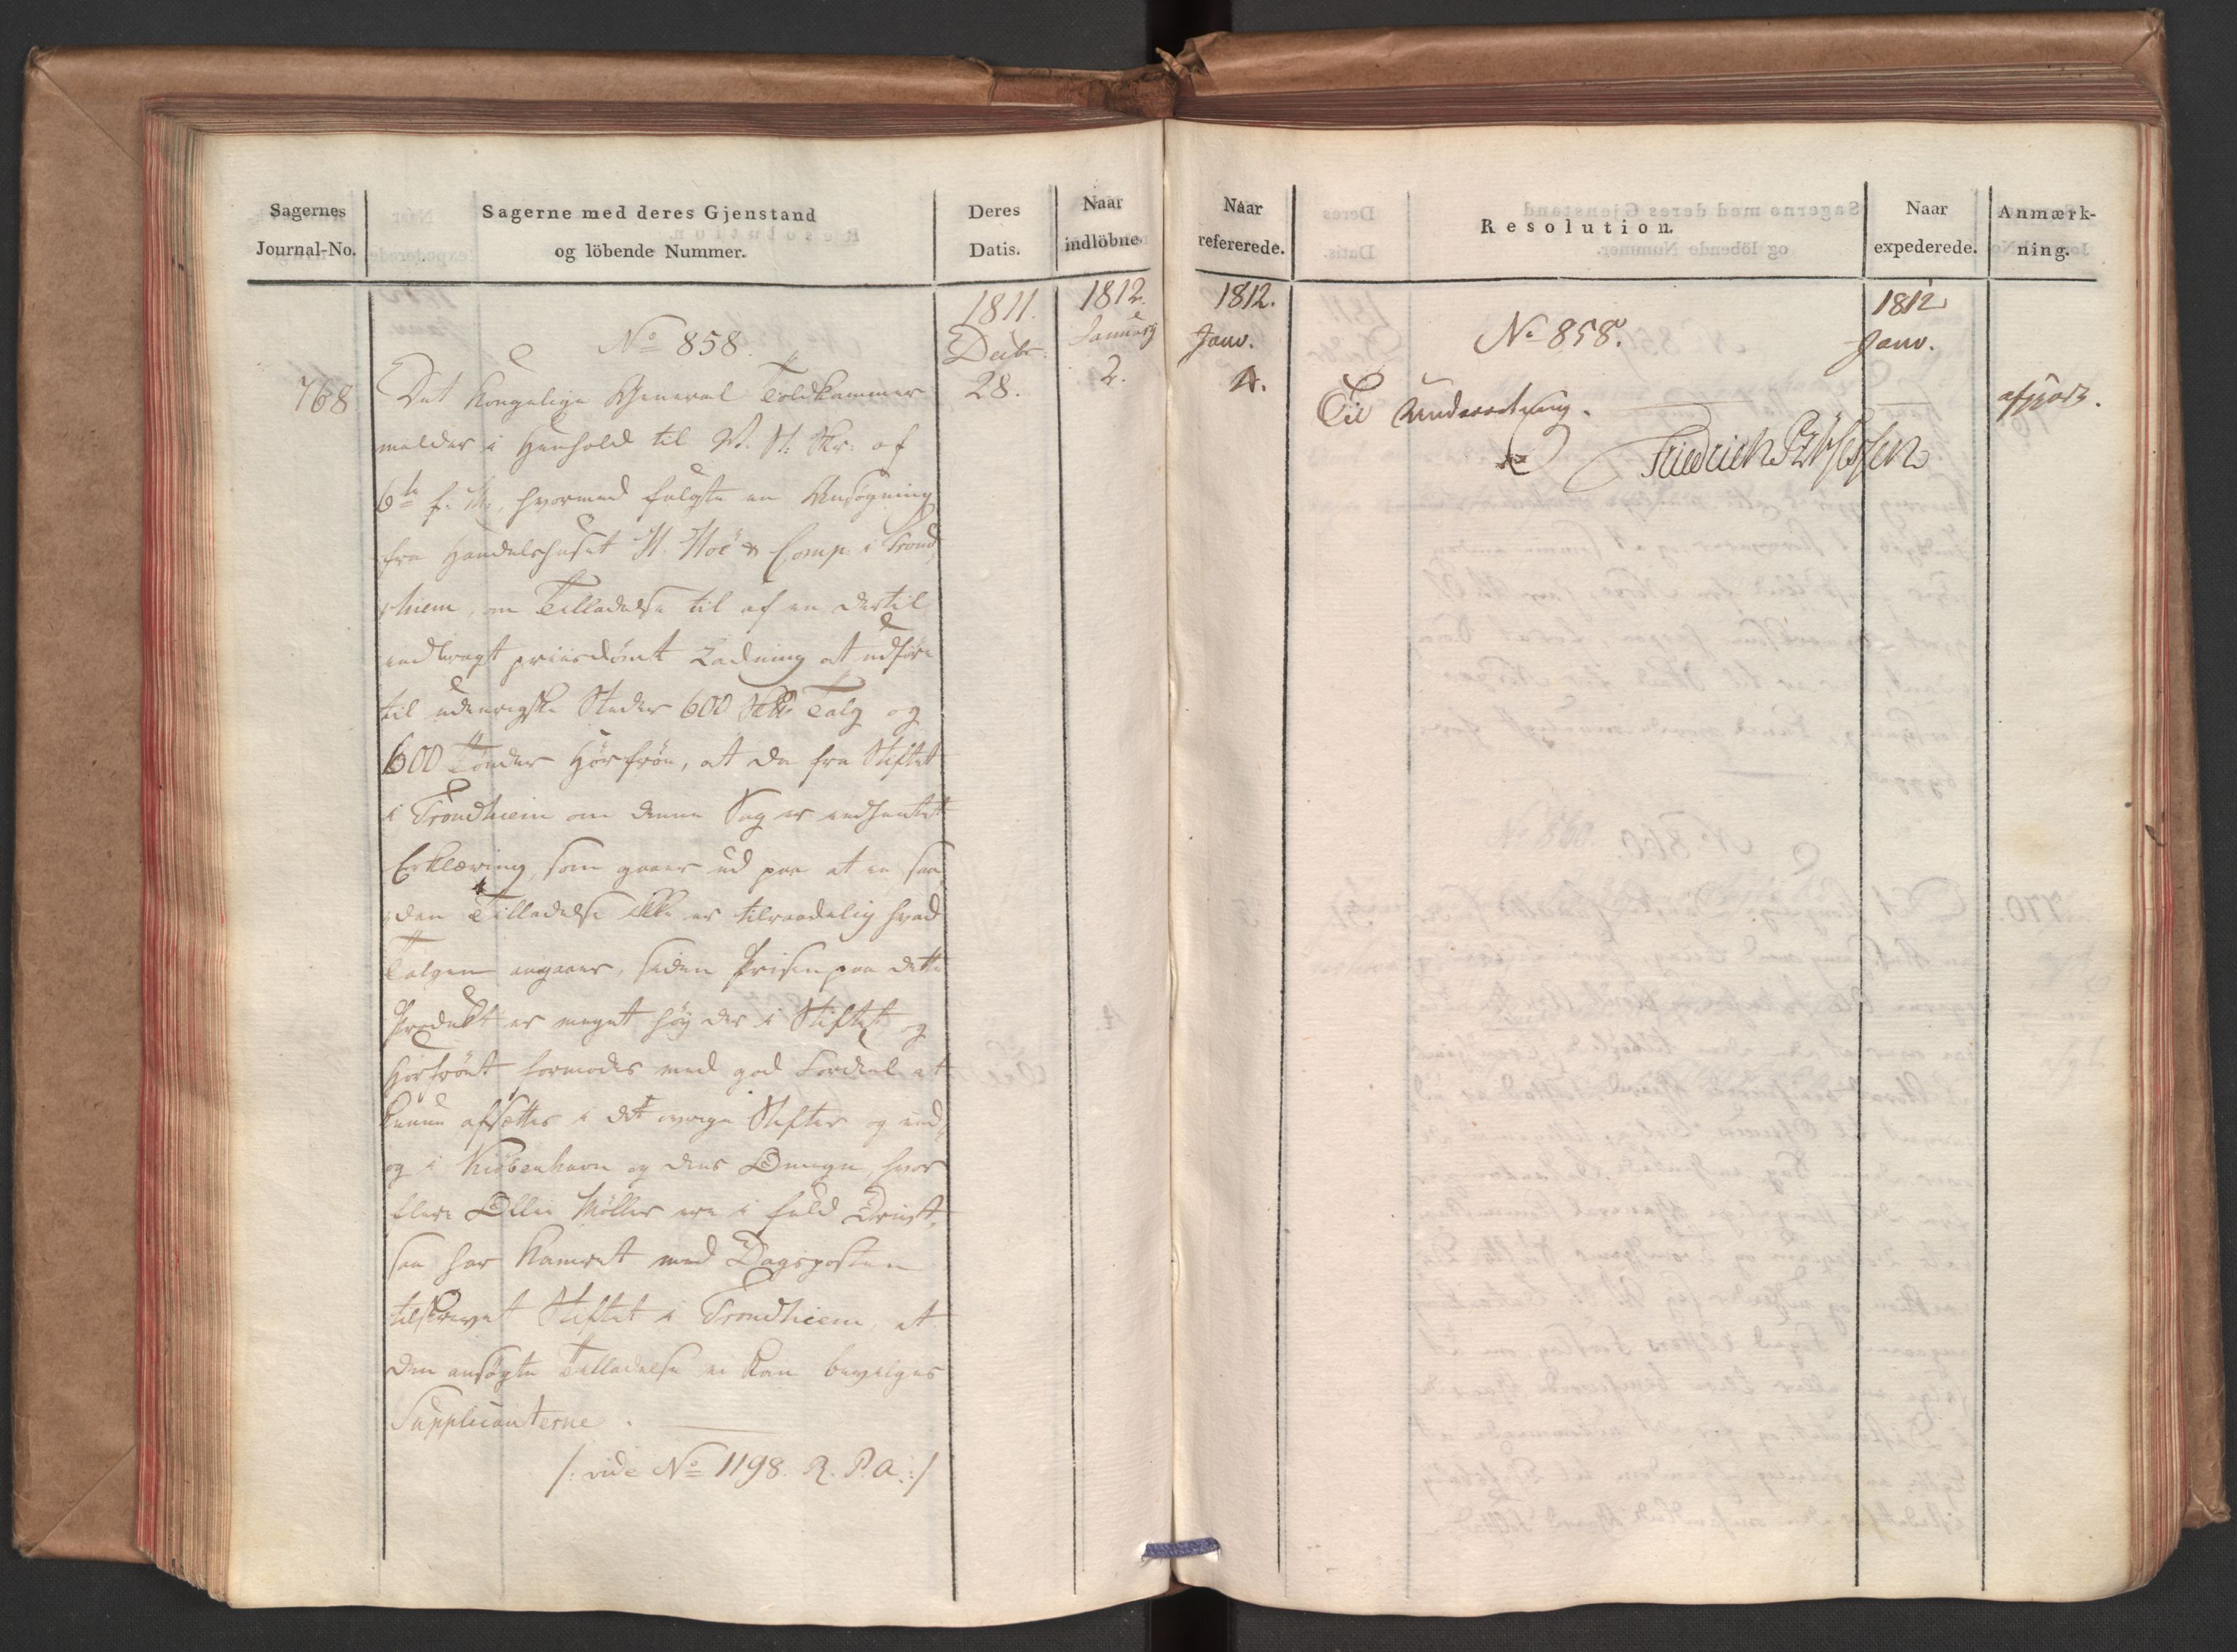 Sagernes
Journal-No.
Sagerne med deres Gjenstand
og löbende Nummer.
Deres
Datis.
Naar
indlöbne.
1811.
Decbr.
28.
1812.
Januarj
2.
No 858.
768
Det kongelige General Toldkammer
melder i Henhold til
6te f. M., hvormed fulgte en Ansøgning
fra Handelshuset H. Hoë & Comp. i Trond
hiem, om Tilladelse til af en dertil
indbragt priisdømt Ladning at udføre
til udenrigske Steder 600 Talg og
600 Tønder Hørfrøe, at da fra Stiftet
i Trondhiem om denne Sag er indhentet
Erklæring, som gaaer ud paa at en saa
dan Tilladelse ikke er tilraadelig hvad
Talgen angaaer, siden Prisen paa dette
Produkt er meget høy der i Stiftet og
Hørfrøet formodes med god Fordeel at
kunne afsættes i det øvrige Stifter og end
og i Kiöbenhavn og dens Omegn, hvor
flere Ollie Møller ere i fuld Drivt,
saa har Kamret med Dagsposten
tilskrevet Stiftet i Trondhiem, at
den ansøgte Tilladelse ei kan bevilges
Supplicanterne.
/: vide No 1198. R. P. A. :/
Naar
refererede.
Resolution.
Naar
expederede.
Anmærk-
ning.
1812.
Janv.
4.
No 858.
Til Underretning.
Friedrich
1812
Janv.
afgjort.